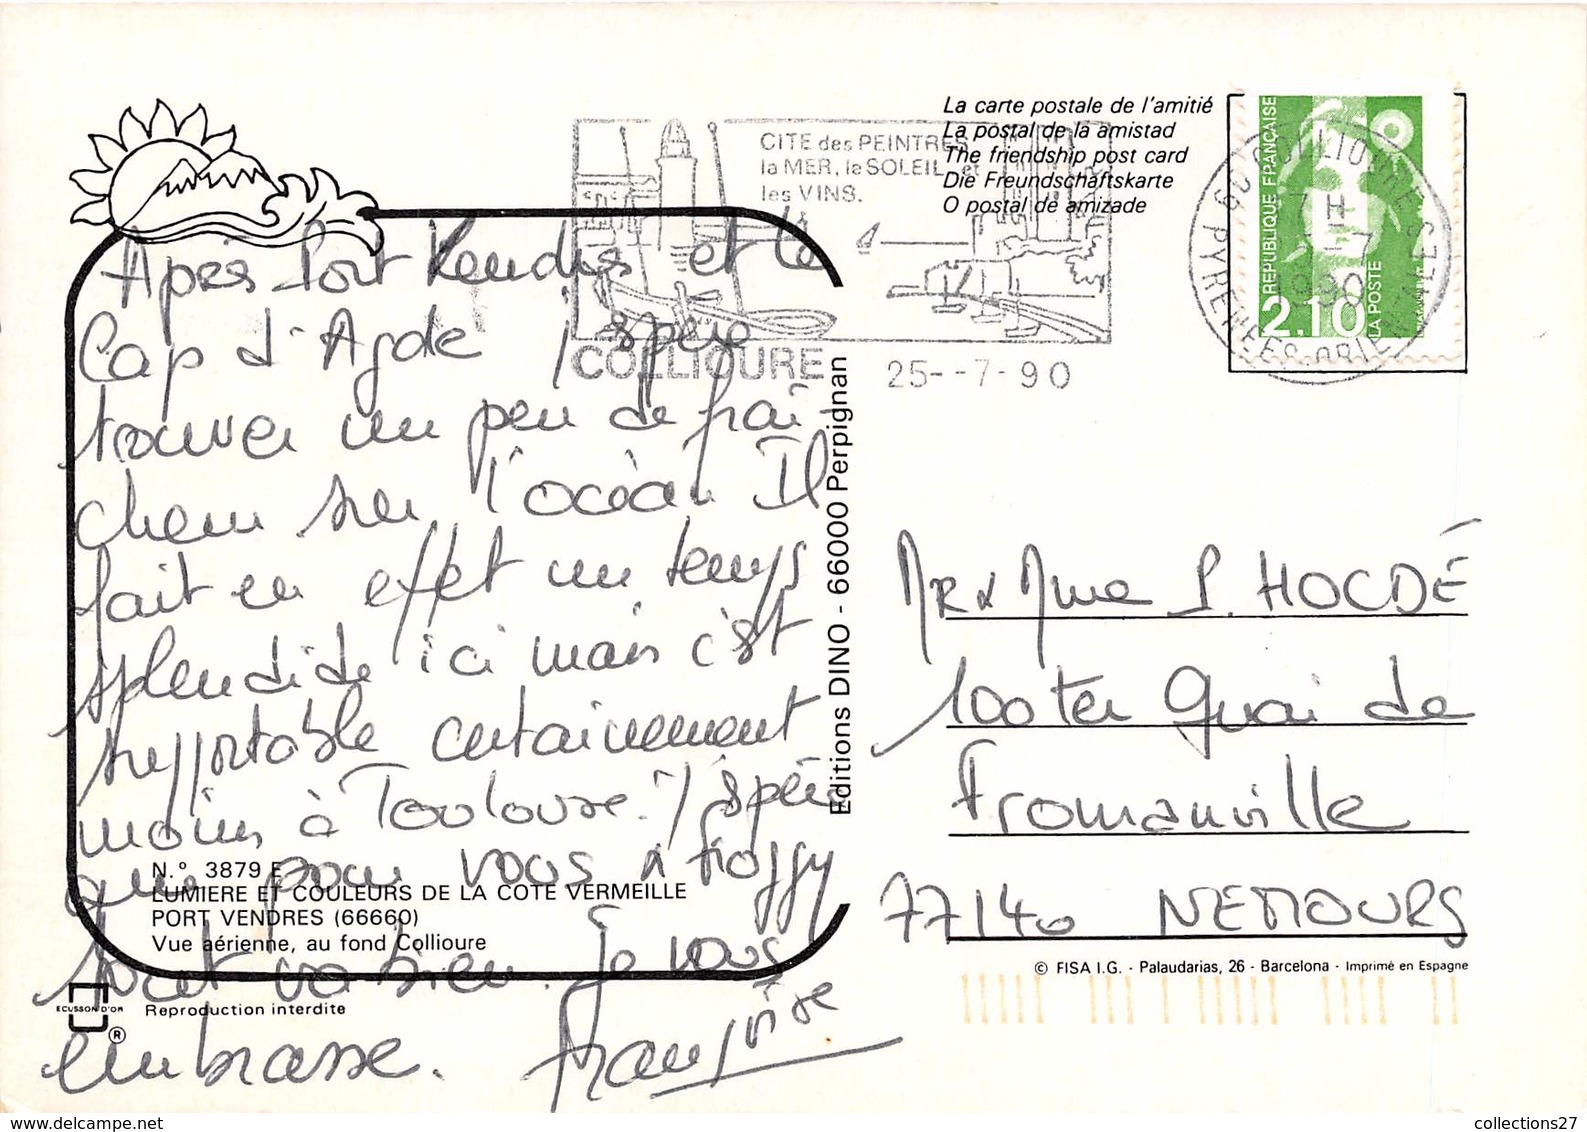 La carte postale de l'amitié
La postal de la amistad
The friendship post card
Die Freundschaftskarte
O postal de amizade
CITE des PEINTRES
la MER, le SOLEIL et
les VINS.
COLLIOURE
25--7-90
REPUBLIQUE FRANÇAISE
2,10
LA POSTE
COLLIOURE
7 H
1990
PYRENEES-ORIENTALES
Après Port Vendres et le
Cap d'Agde j'espère
trouver un peu de fraî-
cheur sur l'océan Il
fait en effet un temps
splendide ici mais c'est
supportable certainement
moins à Toulouse. J'espère
que pour vous à
tout va bien. Je vous
embrasse. Françoise
Editions DINO - 66000 Perpignan
N.° 3879 E
LUMIERE ET COULEURS DE LA COTE VERMEILLE
PORT VENDRES (66660)
Vue aérienne, au fond Collioure
ECUSSON D'OR
Reproduction interdite
®
MR & Mme S. HOCDÉ
100 ter Quai de
Fromanville
77140 NEMOURS
© FISA I.G. - Palaudarias, 26 - Barcelona - Imprimé en Espagne
collections27